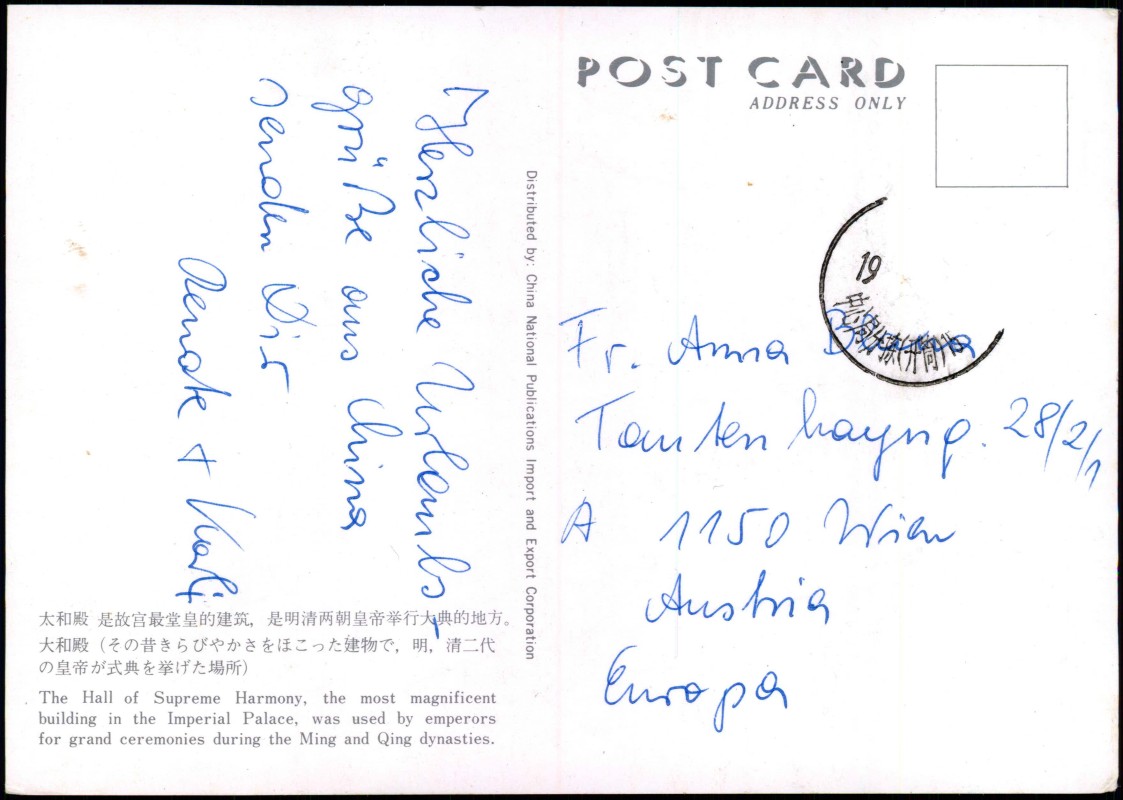 Herzliche Urlaubs-
grüße aus China
senden Dir
Renate + Karli
太和殿 是故宫最堂皇的建筑，是明清两朝皇帝举行大典的地方。
大和殿（その昔きらびやかさをほこった建物で，明，清二代
の皇帝が式典を挙げた場所）
The Hall of Supreme Harmony, the most magnificent
building in the Imperial Palace, was used by emperors
for grand ceremonies during the Ming and Qing dynasties.
Distributed by: China National Publications Import and Export Corporation
POST CARD
ADDRESS ONLY
19
Fr. Anna
Tautenhayng. 28/2/1
A 1150 Wien
Austria
Europa